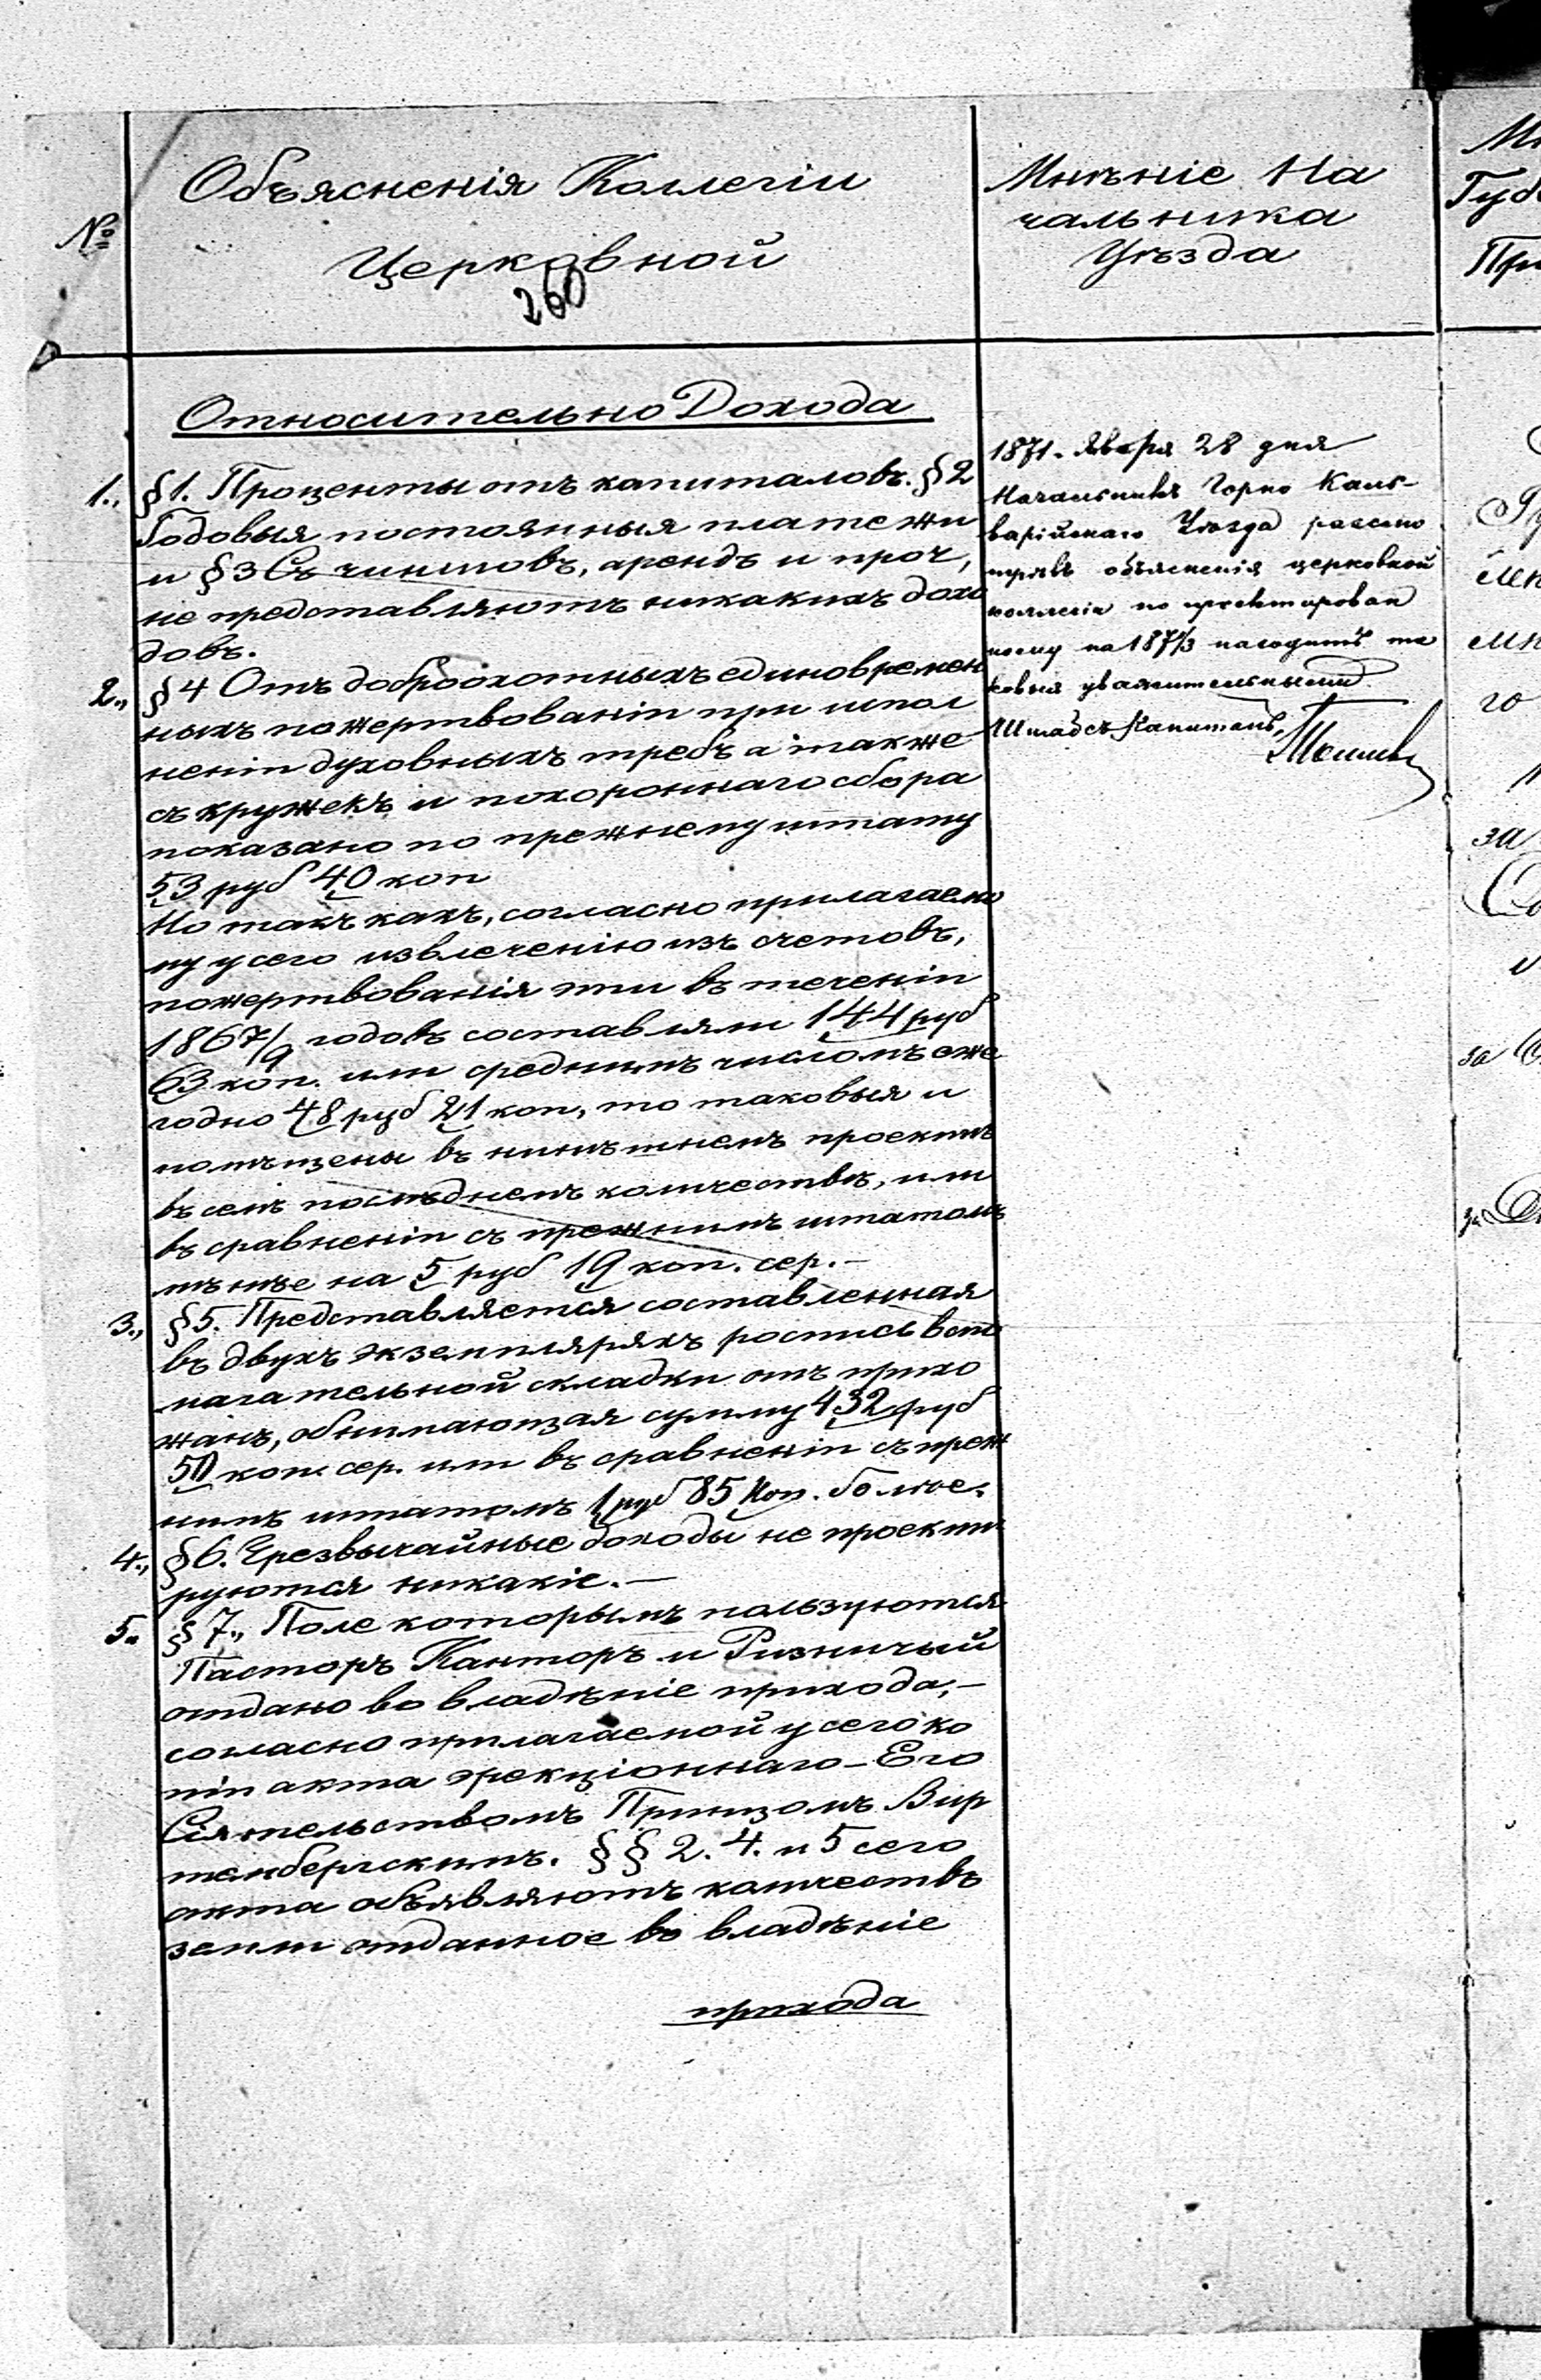 №
Объясненія Коллегіи
Церковной
260
Мнѣніе На
чальника
Уѣзда
Относительно Дохода
1., §1. Проценты отъ капиталовъ. §2
Годовыя постоянныя платежи
и §3 Съ чиншовъ, арендъ и проч,
не представляютъ никакихъ дохо
довъ.
2., §4 Отъ доброохотныхъ единовремен
ныхъ пожертвованіи при испол
неніи духовныхъ требъ а также
съ кружекъ и похороннаго сбора
показано по прежнему штату
53 руб 40 коп
Но такъ какъ, согласно прилагаемо
му у сего извлеченію изъ счетовъ,
пожертвованія эти въ теченіи
1867/9 годовъ составляли 144 руб
63 коп. или среднимъ числомъ еже
годно 48 руб 21 коп, то таковыя и
помѣщены въ нинѣшнемъ проектѣ
въ семъ послѣднемъ количествѣ, или
въ сравненіи съ прежнимъ штатомъ
мѣнѣе на 5 руб 19 коп. сер.—
3., §5. Представляется составленная
въ двухъ экземплярахъ роспись вспо
магательной складки отъ прихо
жанъ, обнимающая сумму 432 руб
50 коп. сер. или въ сравненіи съ преж
нимъ штатомъ 1 руб 85 Коп. болѣе.
4., §6. Чрезвычайные доходы не проекти
руются никакіе.—
5. §7., Поле которымъ пользуются
Пасторъ Канторъ и Ризничый
отдано во владѣніе прихода,—
согласно прилагаемой у сего ко
піи акта эрекціоннаго—Его
Сіятельствомъ Принцомъ Вир
тембергскимъ. §§ 2. 4. и 5 сего
акта объявляютъ количествѣ
земли отданное во владѣніе
прихода
1871. Января 28 дня
Начальникъ Горно Каль-
варійскаго Уѣзда разсмо
трѣвъ объясненія церковной
коллегіи по проектирован
ному на 1871/3 находитъ та
ковыя уважительными
Штабсъ-Капитанъ,